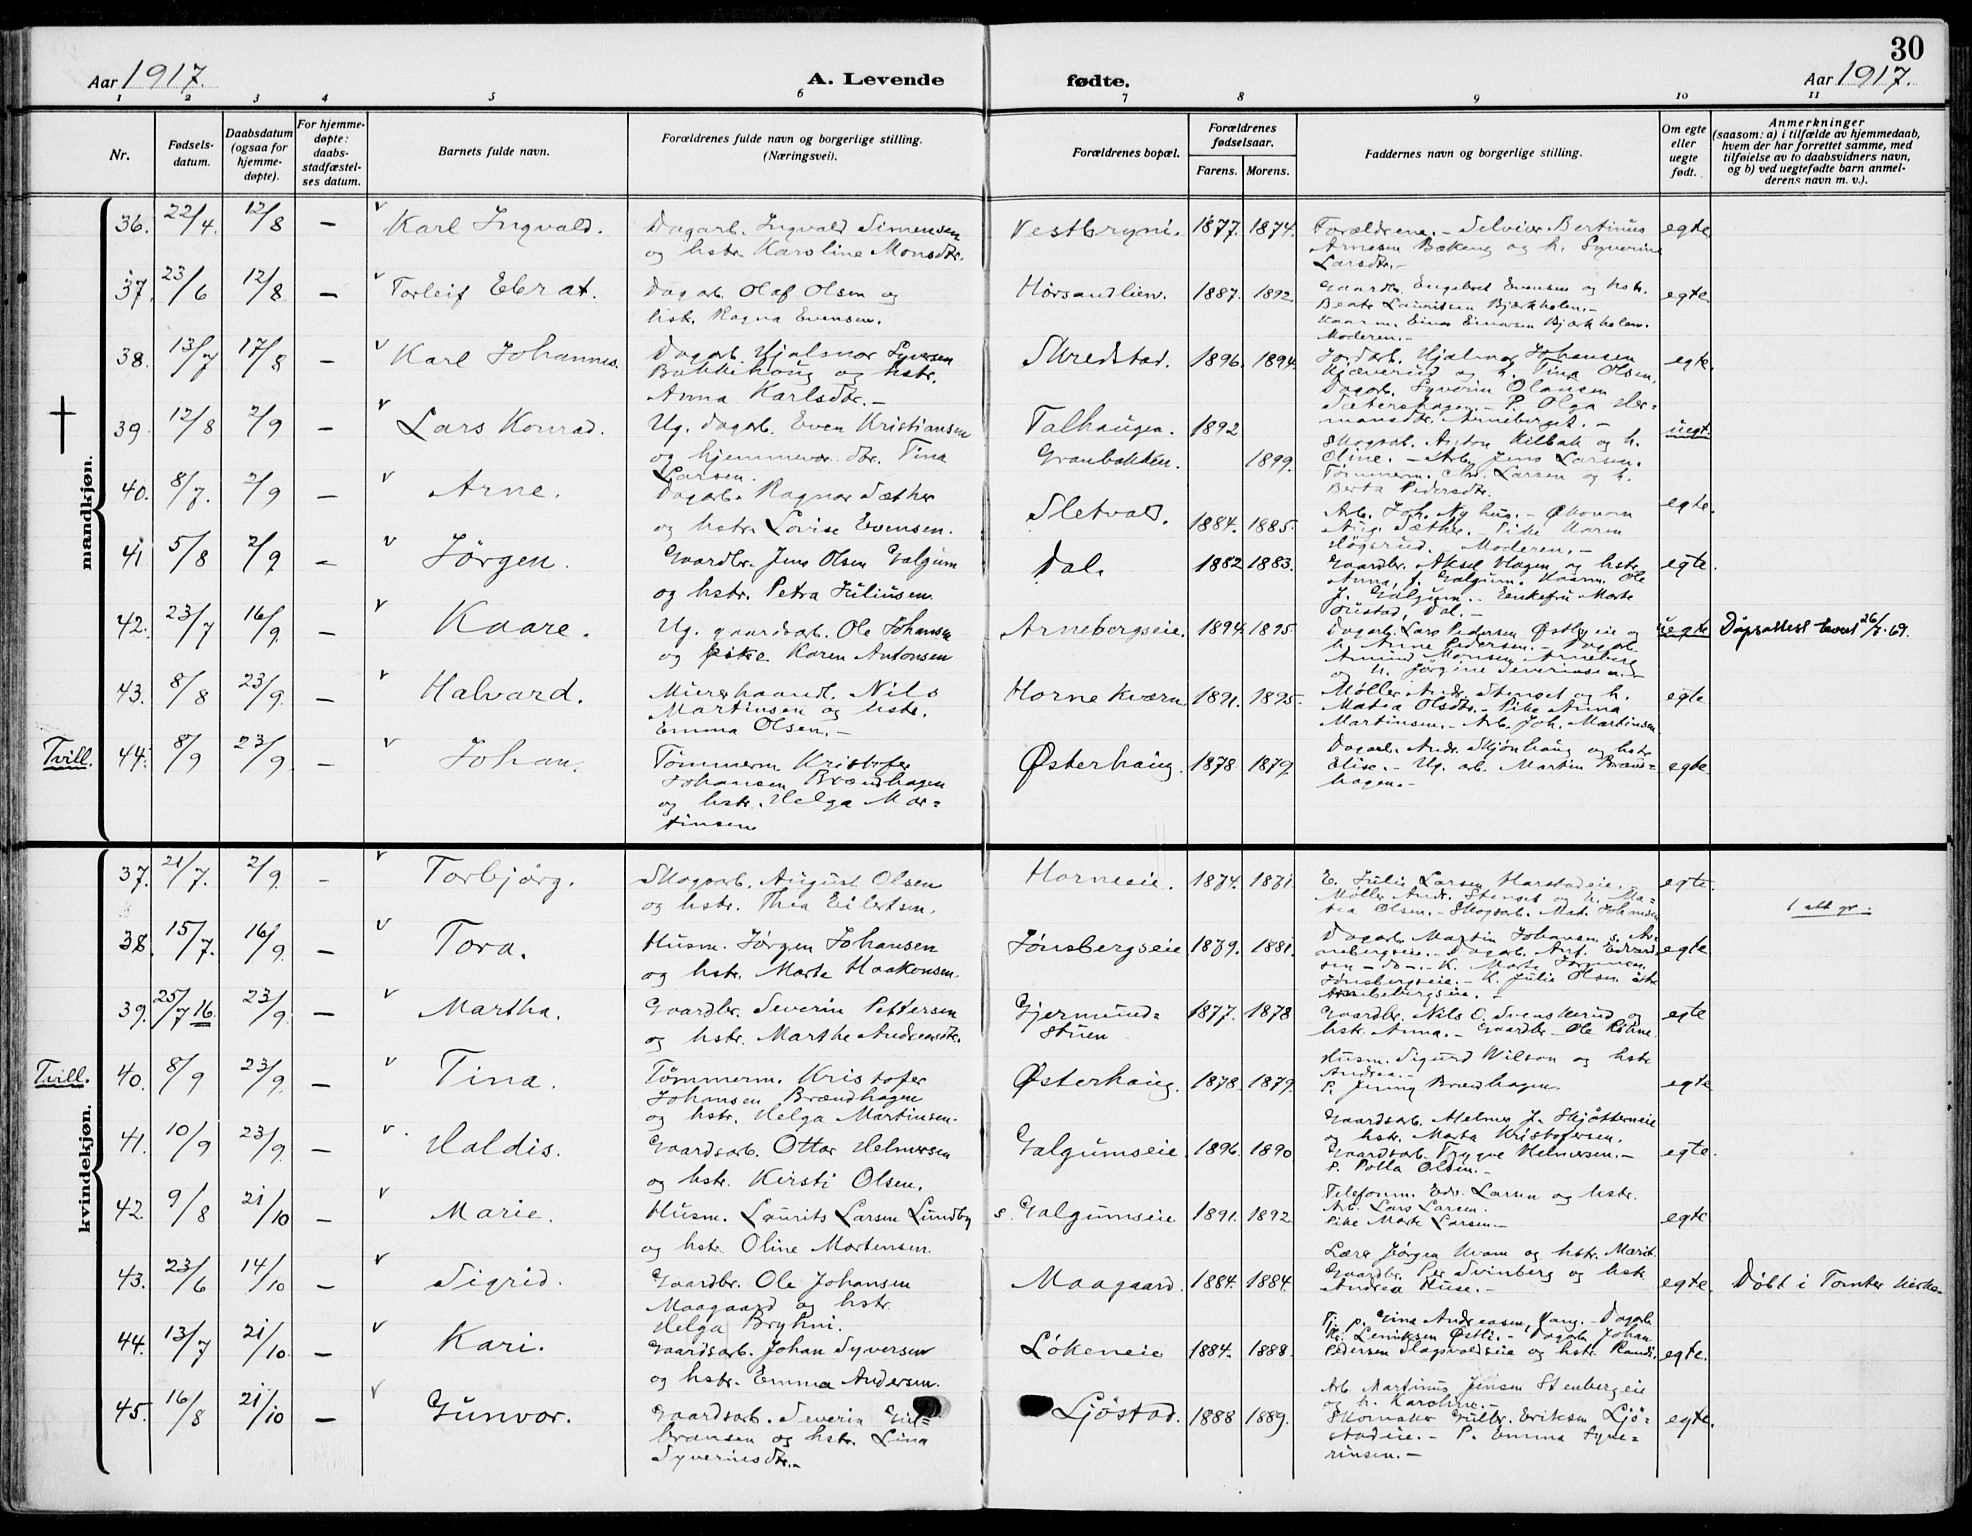 30
Aar 1917.
A. Levende fødte.
Aar 1917.
1 2 3 4 5 6 7 8 9 10 11
Nr.
Fødsels-
datum.
Daabsdatum
(ogsaa for
hjemme-
døpte).
For hjemme-
døpte:
daabs-
stadfæstel-
ses datum.
Barnets fulde navn.
Forældrenes fulde navn og borgerlige stilling.
(Næringsvei).
Forældrenes bopæl.
Forældrenes
fødselsaar.
Farens. Morens.
Faddernes navn og borgerlige stilling.
Om egte
eller
uegte
født.
Anmerkninger
(saasom: a) i tilfælde av hjemmedaab,
hvem der har forrettet samme, med
tilføielse av to daabsvidners navn,
og b) ved uegtefødte barn anmel-
derens navn m. v.).
mandkjøn.
36. 22/4. 12/8 – Karl Ingvald.
Dagarb. Ingvald Simensen
og hstr. Karoline Monsdtr.
Vestbryni. 1877. 1874.
Forældrene. – Selveier Bertinus
Arnesen Bakeng og h. Syverine
Larsdtr. –
egte
37. 23/6 12/8 – Torleif
Dagarb. Olaf Olsen og
hstr. Ragna Evensen.
Hørsandlien. 1887. 1892.
Gaardbr. Engebret Evensen og hstr.
Beate Lauritsen Bjærkholen. –
Einar Einarsen Bjærkholen.
Moderen. –
egte
38. 13/7 17/8 – Karl Johannes.
Dagarb. Hjalmar Syversen
Bakkehaug og hstr.
Anna Karlsdtr. –
Skredstad. 1896. 1894.
Jordarb. Hjalmar Johansen
Kjæverud og h. Tina Olsen.
Dagarb. Syverin Olausen
Sæterhagen. – P. Olga Her-
mansdtr. Arneberget. –
egte.
39. 12/8 2/9 – Lars Konrad.
Ug. dagarb. Even Kristiansen
og hjemmevær. dtr. Tina
Larsen.
Talhaugen. 1892
Granbakken. 1899.
Skogsarb. Anton Kilbak og h.
Oline. – Arb. Jens Larsen.
Tømmerm. Chr. Larsen og h.
Berta Pedersdtr.
uegt.
40. 8/7. 2/9 – Arne.
Dagarb. Ragnar Sæther
og hstr. Lovise Evensen.
Sletvold. 1884. 1885.
Arb. Joh. Nyhus. – Økonom
Aug. Sæther. – Pike Karen
Høgsrud. Moderen. –
egte.
41 5/8 2/9 – Jørgen.
Gaardbr. Jens Olsen Galgum
og hstr. Petra Juliusen.
Dal. 1882 1883.
Gaardbr. Aksel Hagen og hstr.
Anna, f. Galgum. Kaarm. Ole
J. Galgum. – Enkefru Marte
Dal. –
egte.
42. 23/7 16/9. – Kaare.
Ug. gaardsarb. Ole Johansen
og pike Karen Antonsen
Arnebergseie. 1894. 1895.
Dagarb. Lars Pedersen Østbyeie og
h. Anne Pedersen. – Dagarb.
Amund Monsen Arneberg
og h. Jørgine Severinsen. –
uegte
Dåpsattest
43. 8/8 23/9. – Halvard.
Murerhaandl. Nils
Martinsen og hstr.
Emma Olsen. –
Horne Kværn 1891. 1895
Møller Andr. Stenset og h.
Matea Olsdtr. – Pike Anna
Martinsen. – Arb. Joh. Martinsen
egte
Tvill. 44. 8/9 23/9. – Johan.
Tømmerm Kristofer
Johansen Brændhagen
og hstr. Helga Mar-
tinsen
Østerhaug. 1878 1879.
Dagarb. Andr. Skjønhaug og hstr.
Elise. – Ug. arb. Martin Bræn-
hagen. –
egte
kvindekjøn.
37. 21/7. 2/9. – Torbjørg.
Skogsarb. August Olsen
og hstr. Thea Eilertsen.
Horneeie. 1874. 1871.
E. Julie Larsen Harstadeie. –
Møller Andr. Stenset og h. Ma-
tea Olsen. – Skogsarb. Mat. Johansen
egte.
38. 15/7. 16/9. – Tora.
Husm. Jørgen Johansen
og hstr. Marte Haakonsen.
Jønsbergseie 1879. 1881.
Dagarb. Martin Johansen s. Ar-
nebergseie. – Dagarb. Ant. Edvard-
sen – do –. K. Marte
Jønsbergseie. – K. Julie Olsen
Arnebergseie. –
egte
39. 25/7 16 23/9. – Martha.
Gaardbr. Severin Pettersen
og hstr. Marthe Andreasdtr.
Gjermund-
stuen 1877. 1878
Gaardbr. Nils O. Svenskerud og
hstr. Anna. – Gaardbr. Ole Røhne.
egte
Tvill. 40. 8/9 23/9. – Tina.
Tømmerm. Kristofer
Johansen Brændhagen
og hstr. Helga Martinsen.
Østerhaug. 1878. 1879.
Husm. Sigurd Wilson og hstr
Andrea. –
P. Jenny Brændhagen.
egte
41. 10/9 23/9. – Haldis.
Gaardsarb. Ottar Helmersen
og hstr. Kirsti Olsen.
Galgumseie. 1896. 1890
Gaardsarb. Helmer J. Skjøttereie
og hstr. Marta Kristofersen.
Gaardsarb. Trygve Helmersen. –
P. Polla Olsen. –
egte.
42. 9/8 21/10 – Marie.
Husm. Laurits Larsen Lundby
og hstr. Oline Mortensen.
s. Galgumseie 1891. 1892.
Telefonm. Edv. Larsen og hstr.
Arb. Lars Larsen.
Pike Marte Larsen. –
egte
43. 23/6 14/10 – Sigrid.
Gaardbr. Ole Johansen
Maagaard og hstr.
Helga Bryhni.
Maagaard. 1884. 1884.
Lærer Jørgen Kvam og hstr. Marit.
Gaardbr. Per Svinberg og hstr.
Andrea Huse. –
egte.
Døbt i Tomter kirke.
44. 13/7 21/10. – Kari.
Gaardsarb. Johan Syversen
og hstr. Emma Andersen.
Løkeneie 1884. 1888.
Tj. p. Gina Andreasen, Haug. – Dagarb.
Kr. Leniksen Østli. – Dagarb. Johan
Pedersen Slagsvoldseie og hstr. Randi.
egte.
45. 16/8 21/10 – Gunvor.
Gaardsarb. Severin Gul-
bransen og hstr. Lina
Syverinsdtr. –
Ljøstad. 1888 1889.
Arb. Martinus Jensen Stenbergeie
og h. Karoline. –
Skomaker Gulbr. Eriksen Ljø-
stadeie. – P. Emma Syve-
rinsen. –
egte.